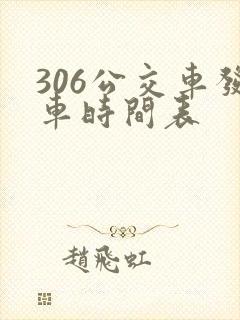 306公交車發
車時間表
趙飛虹